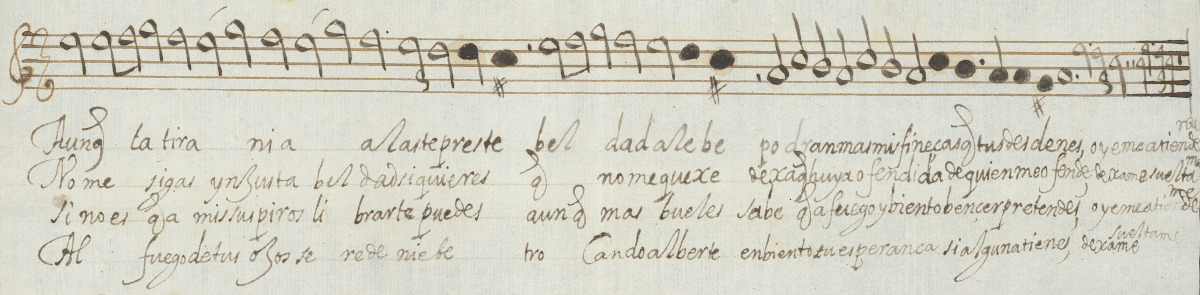 Aunq̃ la tira nia alas te preste bel dad alebe podran mas mis fineças q̃ tus desdenes, oyeme atiende
No me sigas ynjusta beldad si quieres q̃ no me quexe dexa q̃ huya ofendida de quien me ofende dexame sueltame
si no es q̃ a mis suspiros librarte puedes aunq̃ mas bueles sabe q̃ a fuego y biento bençer pretendes, oyeme atiende
Al fuego de tus ojos se rede niebe trocando al berte en biento tu esperança si alguna tienes, dexame sueltame